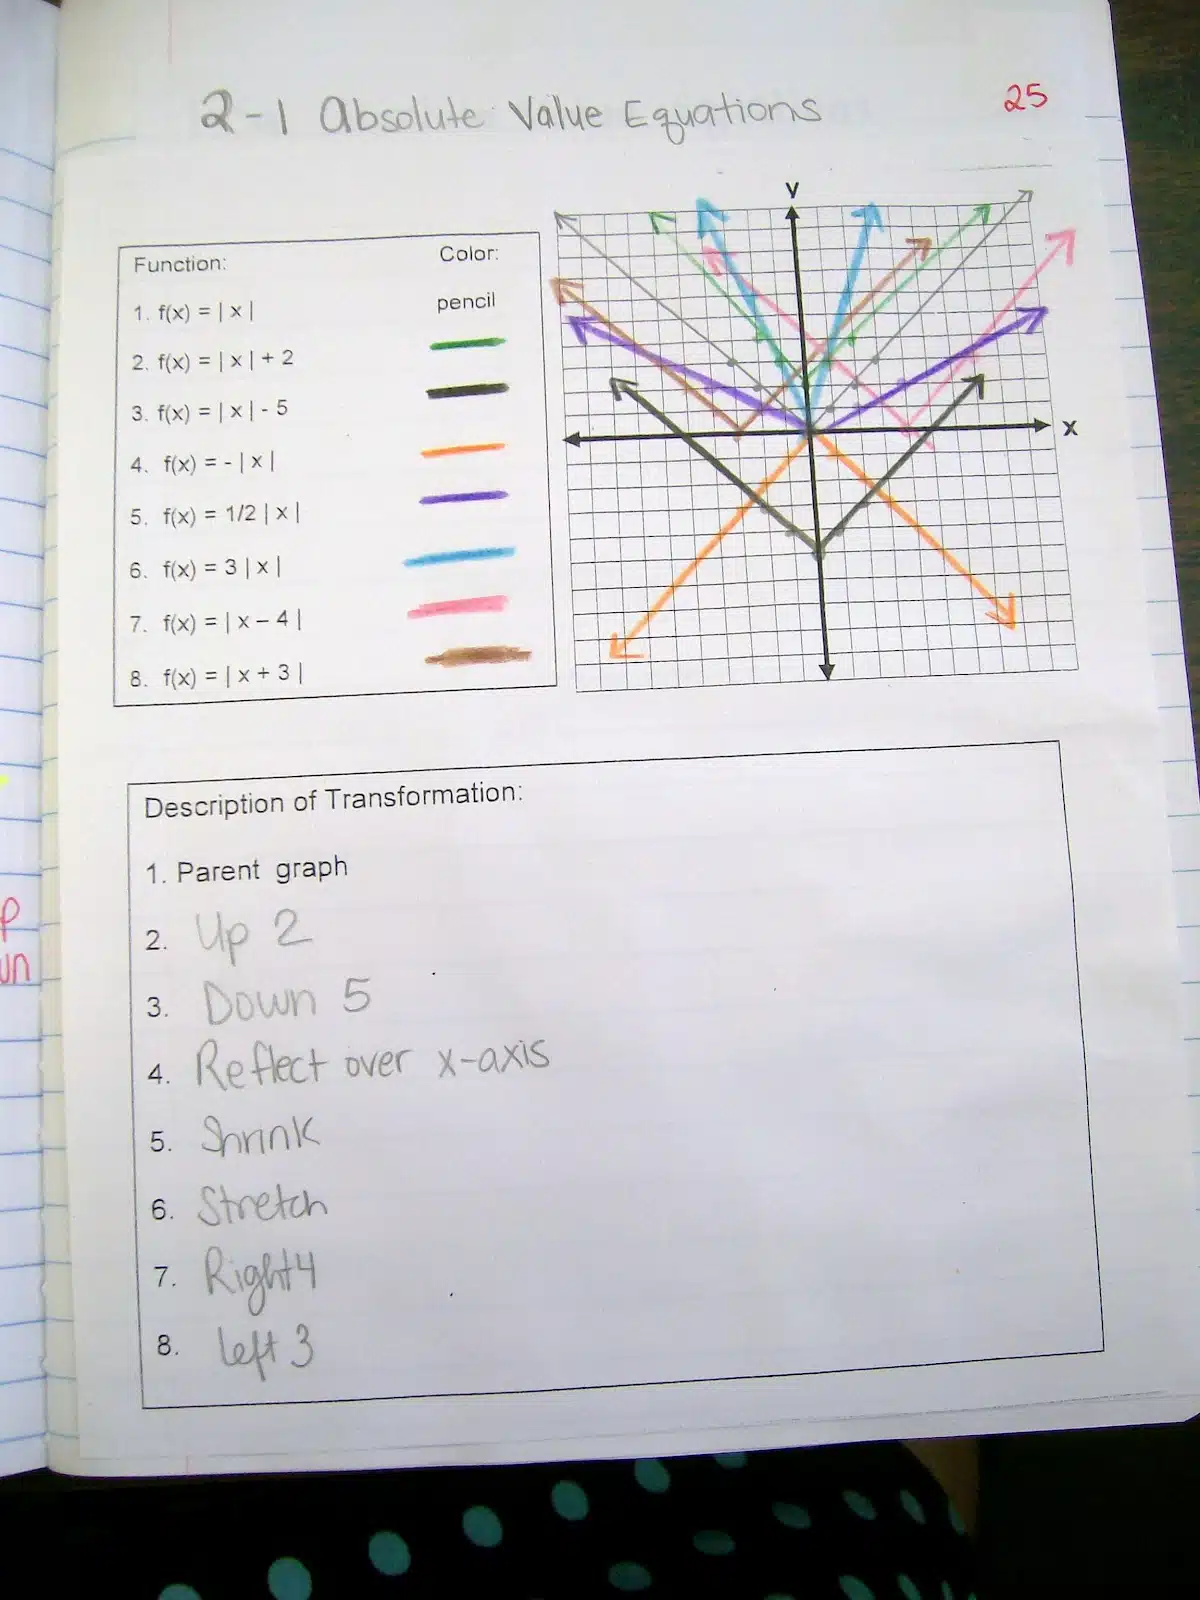 2-1 Absolute Value Equations
25
Function:
Color:
1. f(x) = | x |
pencil
2. f(x) = | x | + 2
3. f(x) = | x | - 5
4. f(x) = - | x |
5. f(x) = 1/2 | x |
6. f(x) = 3 | x |
7. f(x) = | x – 4 |
8. f(x) = | x + 3 |
y
x
Description of Transformation:
1. Parent graph
2. Up 2
3. Down 5
4. Reflect over x-axis
5. Shrink
6. Stretch
7. Right 4
8. Left 3